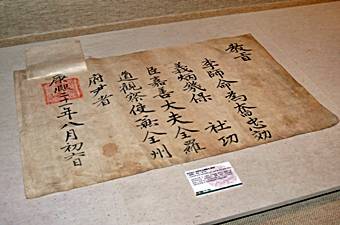 教旨
李師命爲奮忠効
義炳幾保 社功
臣嘉善大夫全羅
道觀察使兼全州
府尹者
康熙二十年八月初六日